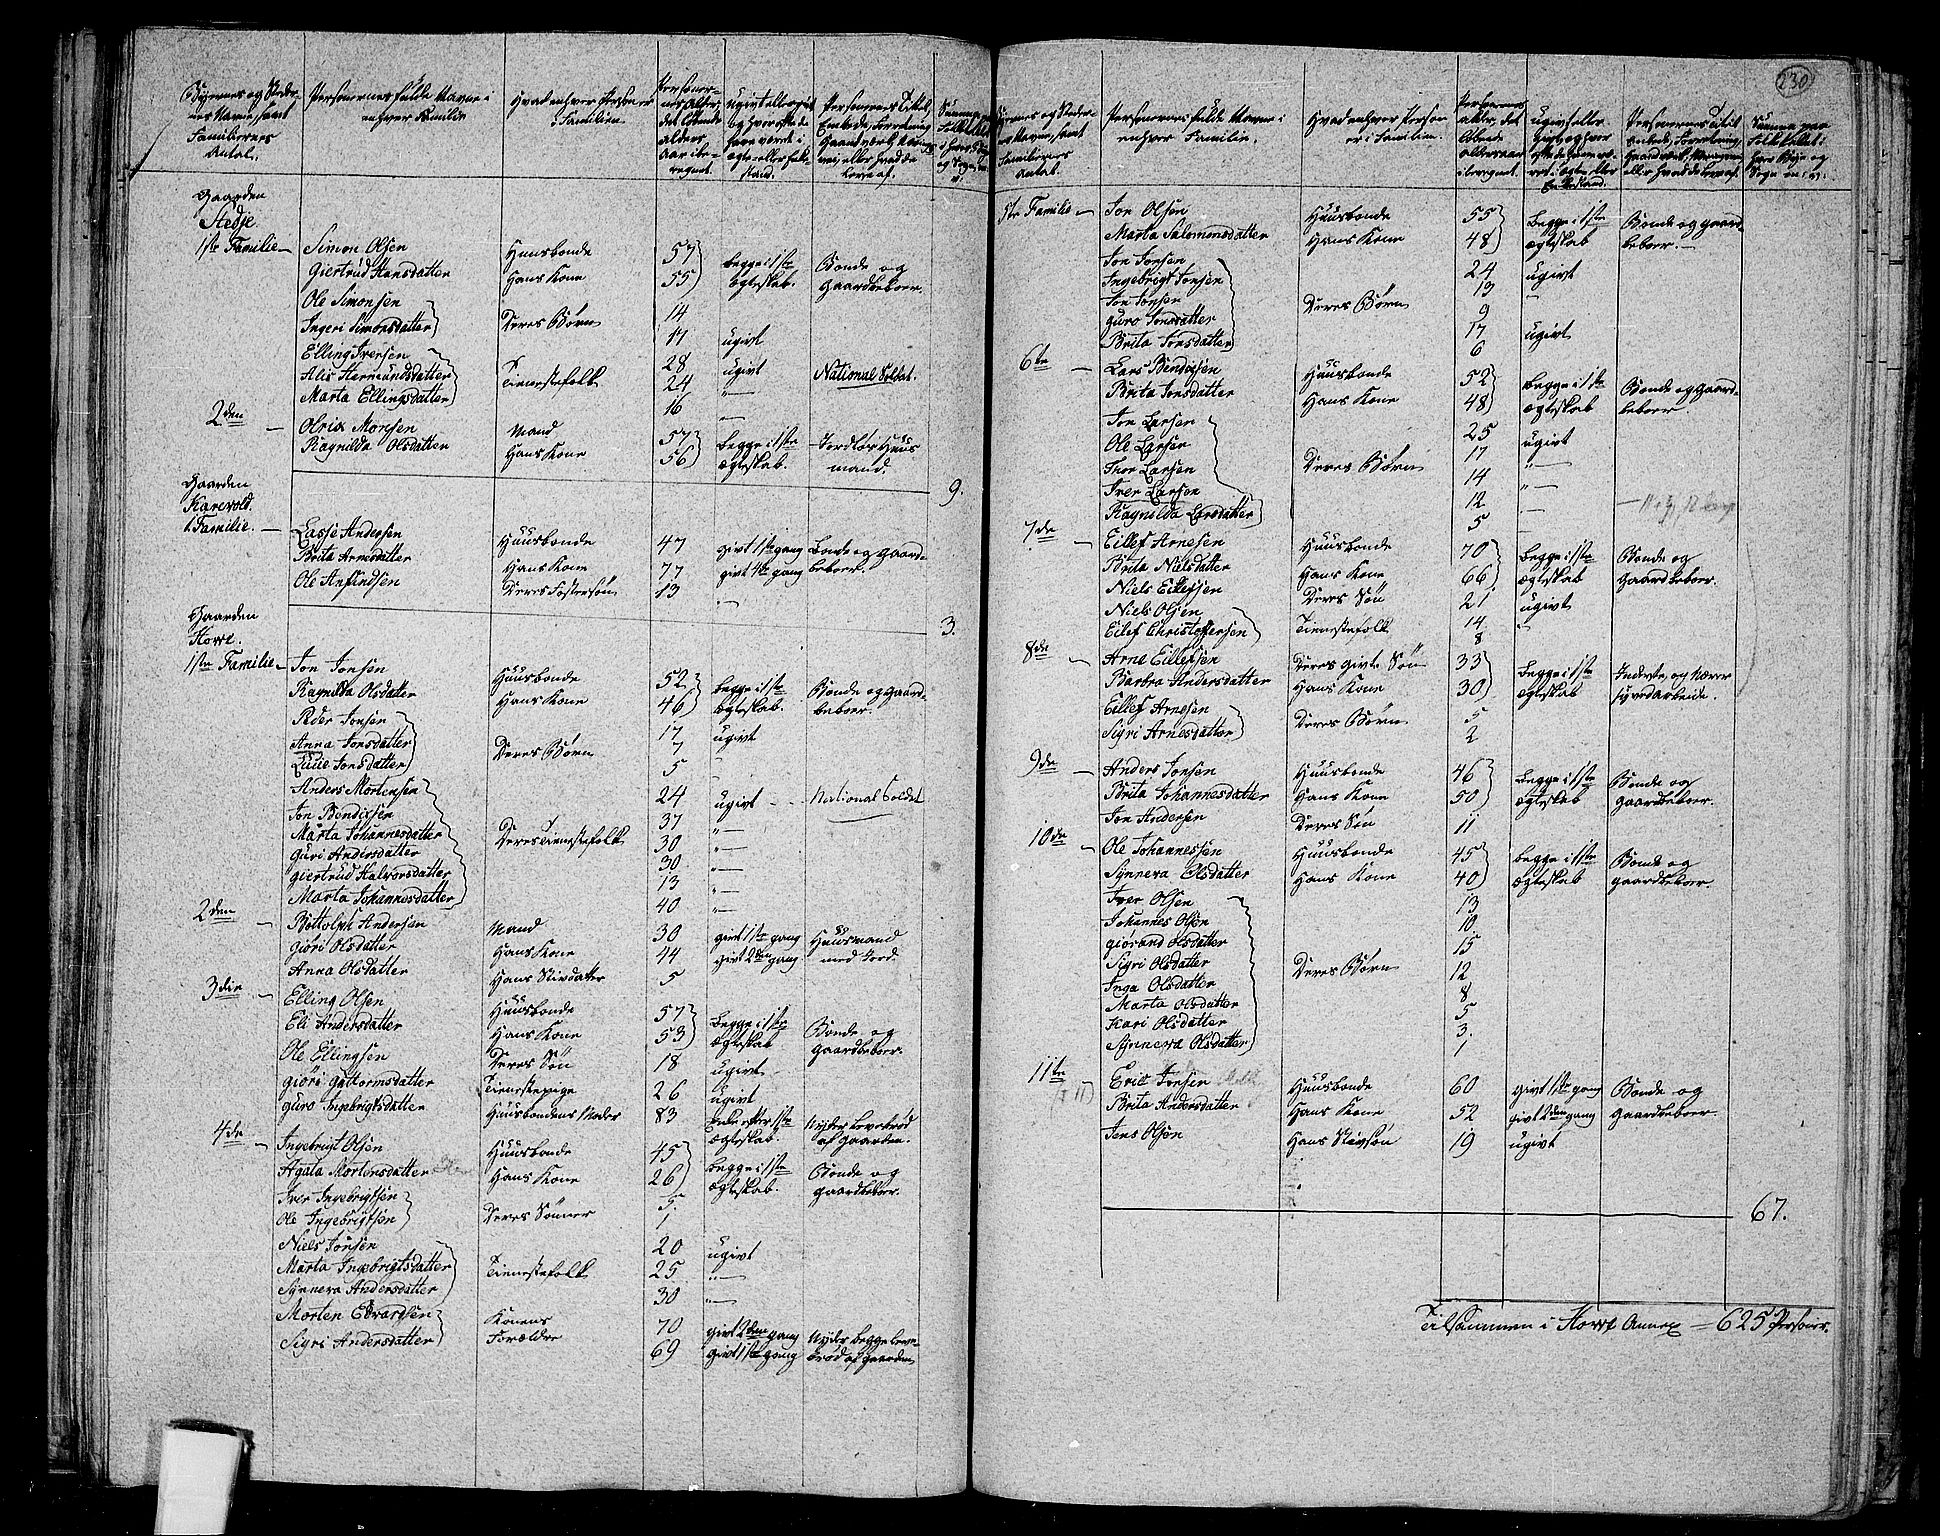 Byernes og Stedernes Navne, samt Familiernes Antal.
Personernes fulde Navne i enhver Familie
Hvad enhver Person er i Familien.
Personernes Alder, det løbende Alders Aar iberegnet.
ugivt eller givt og hvor ofte de have været i Ægte- eller Enkestand.
Personernes Titel, Embede, Forretning
Gaarden
Stedje.
1ste Familie — Simon Olsen Huusbonde 57 begge i 1ste Bonde og
Giertrud Hansdatter Hans Kone 55 Ægteskab. Gaardbeboer.
Ole Simonsen 14
Ingeri Simonsdatter Deres Børn 17 ugivt
Elling Iversen 28 ugivt National Soldat.
Alis Hermundsdatter Tienestefolk 24 "—
Marta Ellingsdatter 16 —
2den — Olrix Monsen Mand 57 begge i 1ste Jordløs Huus
Ragnilda Olsdatter Hans Kone 56 Ægteskab. mand.
9.
Gaarden
Karevold.
1. Familie. — Lasse Andersen Huusbonde 47 givt 1ste gang Bonde og Gaard-
Brita Arnesdatter Hans Kone 77 givt gang beboer.
Ole Anfindsen Deres Fostersøn 13 "
3.
Gaarden
Horre.
1ste Familie — Jon Jonsen Huusbonde 52 begge i 1ste Bonde og Gaard-
Ragnilda Olsdatter Hans Kone 46 Ægteskab. beboer.
Peder Jonsen 17 ugivt
Anna Jonsdatter Deres Børn 7
Lucie Jonsdatter 5
Anders Mortensen 24 ugivt National Soldat
Jon Bendixsen 37 "—
Marta Johannesdatter Deres Tienestefolk 30 "—
Guri Andersdatter 30 "—
Giertrud Halvorsdatter 13 "—
Marta Johannesdatter 40 "—
2den — Bottolph Andersen Mand 30 givt 1ste gang Huusmand
Giøri Olsdatter Hans Kone 44 givt 2den gang med Jord.
Anna Olsdatter Hans Stivdatter 5
3die — Elling Olsen Huusbonde 57 begge i 1ste Bonde og
Eli Andersdatter Hans Kone 53 Ægteskab Gaardbeboer.
Ole Ellingsen Deres Søn 18 ugivt
Giøri Guttormsdatter Tienestepige 26 ugivt
Guro Ingebrigtsdatter Huusbondens Moder 83 Enke efter 1ste Nyder Levebrød
Ægteskab. af Gaarden.
4de — Ingebrigt Olsen Huusbonde 45 begge i 1ste Bonde og
Agata Mortensdatter Hans Kone 26 Ægteskab. Gaardbeboer.
Iver Ingebrigtsen 5.
Ole Ingebrigtsen Deres Sønner 1
Niels Jonsen 20 ugivt
Marta Ingebrigtsdatter Tienestefolk 25 "—
Synneva Andersdatter 30 "—
Morten Edvardsen Konens 70 givt 2den gang Nyder begge Leve-
Sigri Andersdatter Forældre 69 givt 1ste gang brød af Gaarden
230
Byernes og Stedernes Navne, samt Familiernes Antal
Personernes fulde Navne i enhver Familie.
Hvad enhver Person er i Familien.
Personernes Alder, det løbende Aldersaar iberegnet.
5te Familie — Jon Olsen Huusbonde 55 begge i 1ste Bonde og Gaard-
Marta Salomonsdatter Hans Kone 48 Ægteskab beboer. —
Jon Jonsen 24 ugivt
Ingebrigt Jonsen 13 "
Jon Jonsen Deres Børn 9
Guro Jonsdatter 17 ugivt
Brita Jonsdatter 6
6te — Lars Bendixsen Huusbonde 52 begge i 1ste Bonde og Gaard-
Brita Jonsdatter Hans Kone 48 Ægteskab beboer.
Jon Larsen 25 ugivt
Ole Larsen 17 "—
Thor Larsen Deres Børn 14 "—
Iver Larsen 12 —
Ragnilda Larsdatter 5
7de — Eillef Arnesen Huusbonde 70 begge i 1ste Bonde og
Brita Nielsdatter Hans Kone 66 Ægteskab Gaardbeboer.
Niels Eillefsen Deres Søn 21 ugivt
Niels Olsen 14 "
Eilef Christoffersen Tienestefolk 8
8de — Arne Eillefsen Deres givte Søn 33 begge i 1ste Inderste, og Nærer
Barbra Andersdatter Hans Kone 30 Ægteskab sig ved arbeide.
Eillef Arnesen Deres Børn 5
Sigri Arnesdatter 2
9de — Anders Jonsen Huusbonde 46 begge i 1ste Bonde og
Brita Johannesdatter Hans Kone 50 Ægteskab Gaardbeboer.
Jon Andersen Deres Søn 11
10de — Ole Johannessen Huusbonde 45 begge i 1ste Bonde og
Synneva Olsdatter Hans Kone 40 Ægteskab Gaardbeboer.
Iver Olsen 13
Johannes Olsen 10
Giørand Olsdatter 15
Sigri Olsdatter Deres Børn 12
Inga Olsdatter 8
Marta Olsdatter 5
Kari Olsdatter 3.
Synneva Olsdatter 1
11te Erik Jonsen Huusbonde 60 givt 1ste gang Bonde og
Brita Andersdatter Hans Kone 52 givt 2den gang Gaardbeboer
Jens Olsen Hans Stivsøn 19 ugivt
67.
Tilsammen i Horre Annex = 625 Personer.